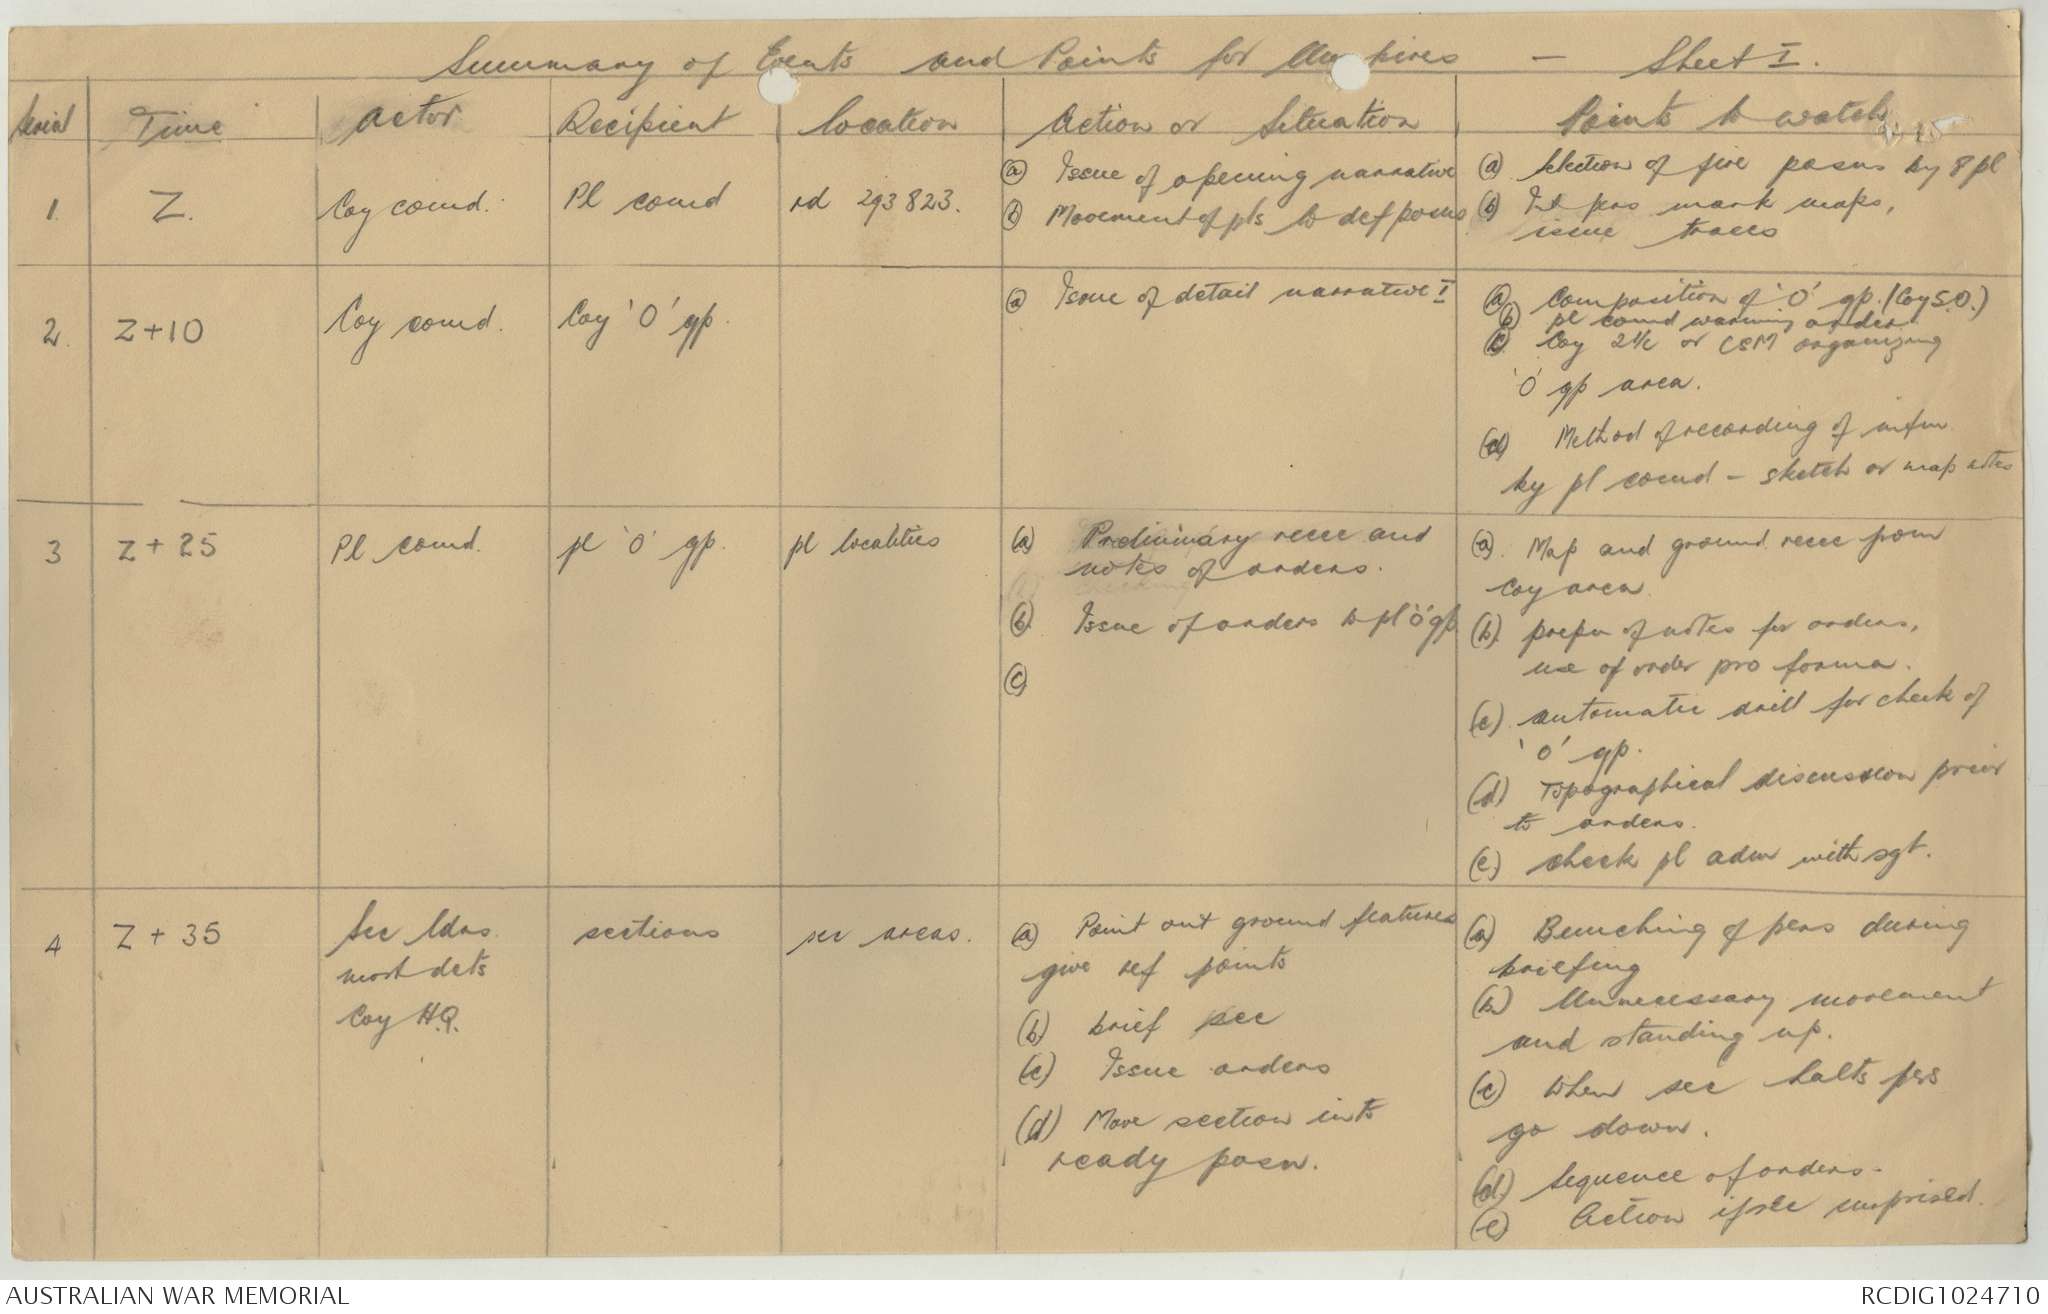 Summary of Events and Points for Umpires — Sheet I.
Serial Time Actor Recipient Location Action or Situation Points to watch
1. Z. Coy comd. Pl comd rd 293823.
(a) Issue of opening narrative
(b) Movement of pls to def posns
(a) Selection of fire posns by 8 pl
(b) Int pers mark maps,
issue traces
2. Z+10 Coy comd. Coy 'O' gp.
(a) Issue of detail narrative I
(a) Composition of 'O' gp. (Coy S.O.)
(b) pl comd warning order
(c) Coy 2i/c or CSM organizing
'O' gp area.
(d) Method of recording of infm
by pl comd - sketch or map notes
3 Z + 25 Pl comd. pl 'O' gp. pl localities
(a) Preliminary recce and
notes of orders.
(b) Issue of orders to pl 'O' gp
(c)
(a). Map and ground recce from
Coy area.
(b). prepn of notes for orders,
use of order pro forma.
(c). automatic drill for check of
'O' gp.
(d) Topographical discussion prior
to orders.
(e) check pl adm with sgt.
4 Z + 35 Sec ldrs. sections sec areas.
mort dets
Coy H.Q.
(a) Point out ground features
give ref points
(b) brief sec
(c) Issue orders
(d) Move section into
ready posn.
(a) Bunching of pers during
briefing
(b) Unnecessary movement
and standing up.
(c) When sec halts pers
go down.
(d) Sequence of orders.
(e) Action if sec surprised.
AUSTRALIAN WAR MEMORIAL
RCDIG1024710